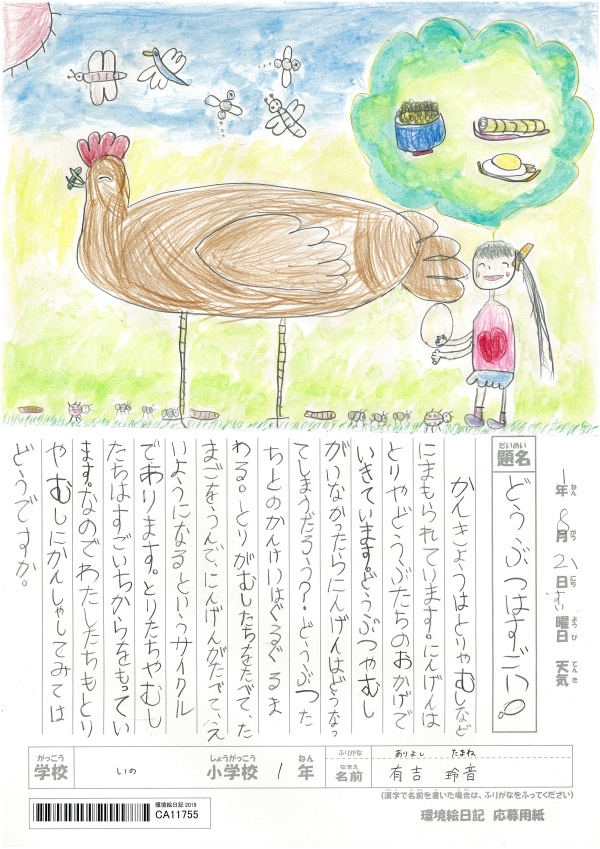 1年 8月 21日 すい曜日 天気
ねん がつ にち ようび てんき
だいめい
題名 どうぶつはすごい。
かんきょうはとりやむしなど
にまもられています。にんげんは
とりやどうぶたちのおかげで
いきています。どうぶつやむし
がいなかったらにんげんはどうなっ
てしまうだろう?。どうぶつた
ちとのかんけいはぐるぐるま
わる。とりがむしたちをたべて、た
まごをうんで、にんげんがたべて、え
いようになるというサイクル
であります。とりたちやむし
たちはすごいちからをもってい
ます。なのでわたしたちもとり
やむしにかんしゃしてみては
どうですか。
がっこう しょうがっこう ねん ふりがな ありよし たまね
学校 いの 小学校 1年 なまえ 名前 有吉 玲音
(漢字で名前を書いた場合は、ふりがなをふってください)
環境絵日記 2019
CA11755
環境絵日記 応募用紙